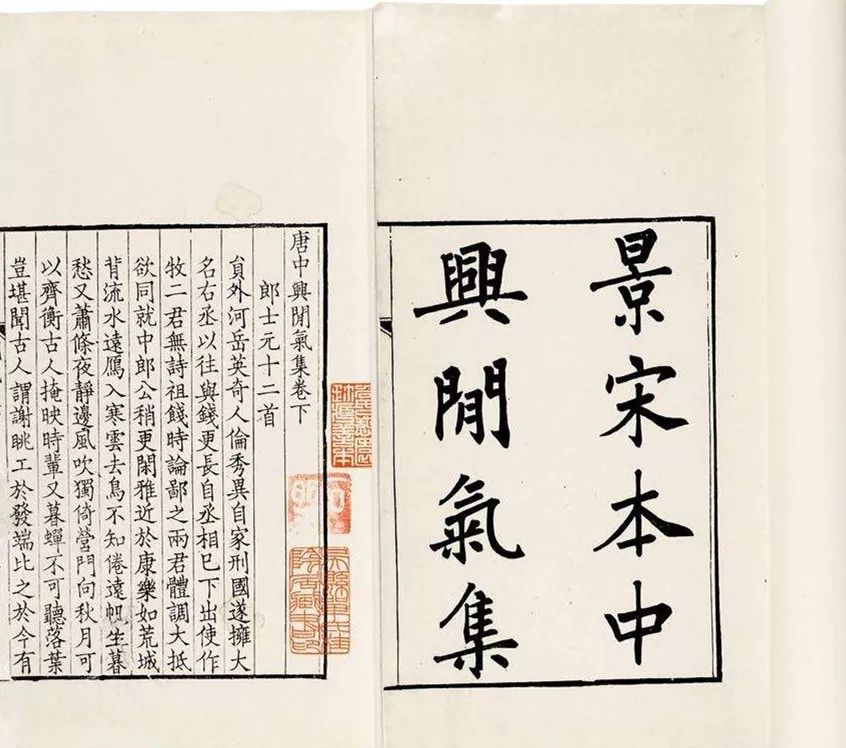 景宋本中
興閒氣集
唐中興閒氣集卷下
郎士元十二首
貟外河岳英奇人倫秀異自家刑國遂擁大
名右丞以往與錢更長自丞相巳下出使作
牧二君無詩祖餞時論鄙之兩君體調大抵
欲同就中郎公稍更閑雅近於康樂如荒城
背流水遠鴈入寒雲去鳥不知倦遠帆生暮
愁又蕭條夜靜邊風吹獨倚營門向秋月可
以齊衡古人掩映時輩又暮蟬不可聽落葉
豈堪聞古人謂謝眺工於發端比之於今有